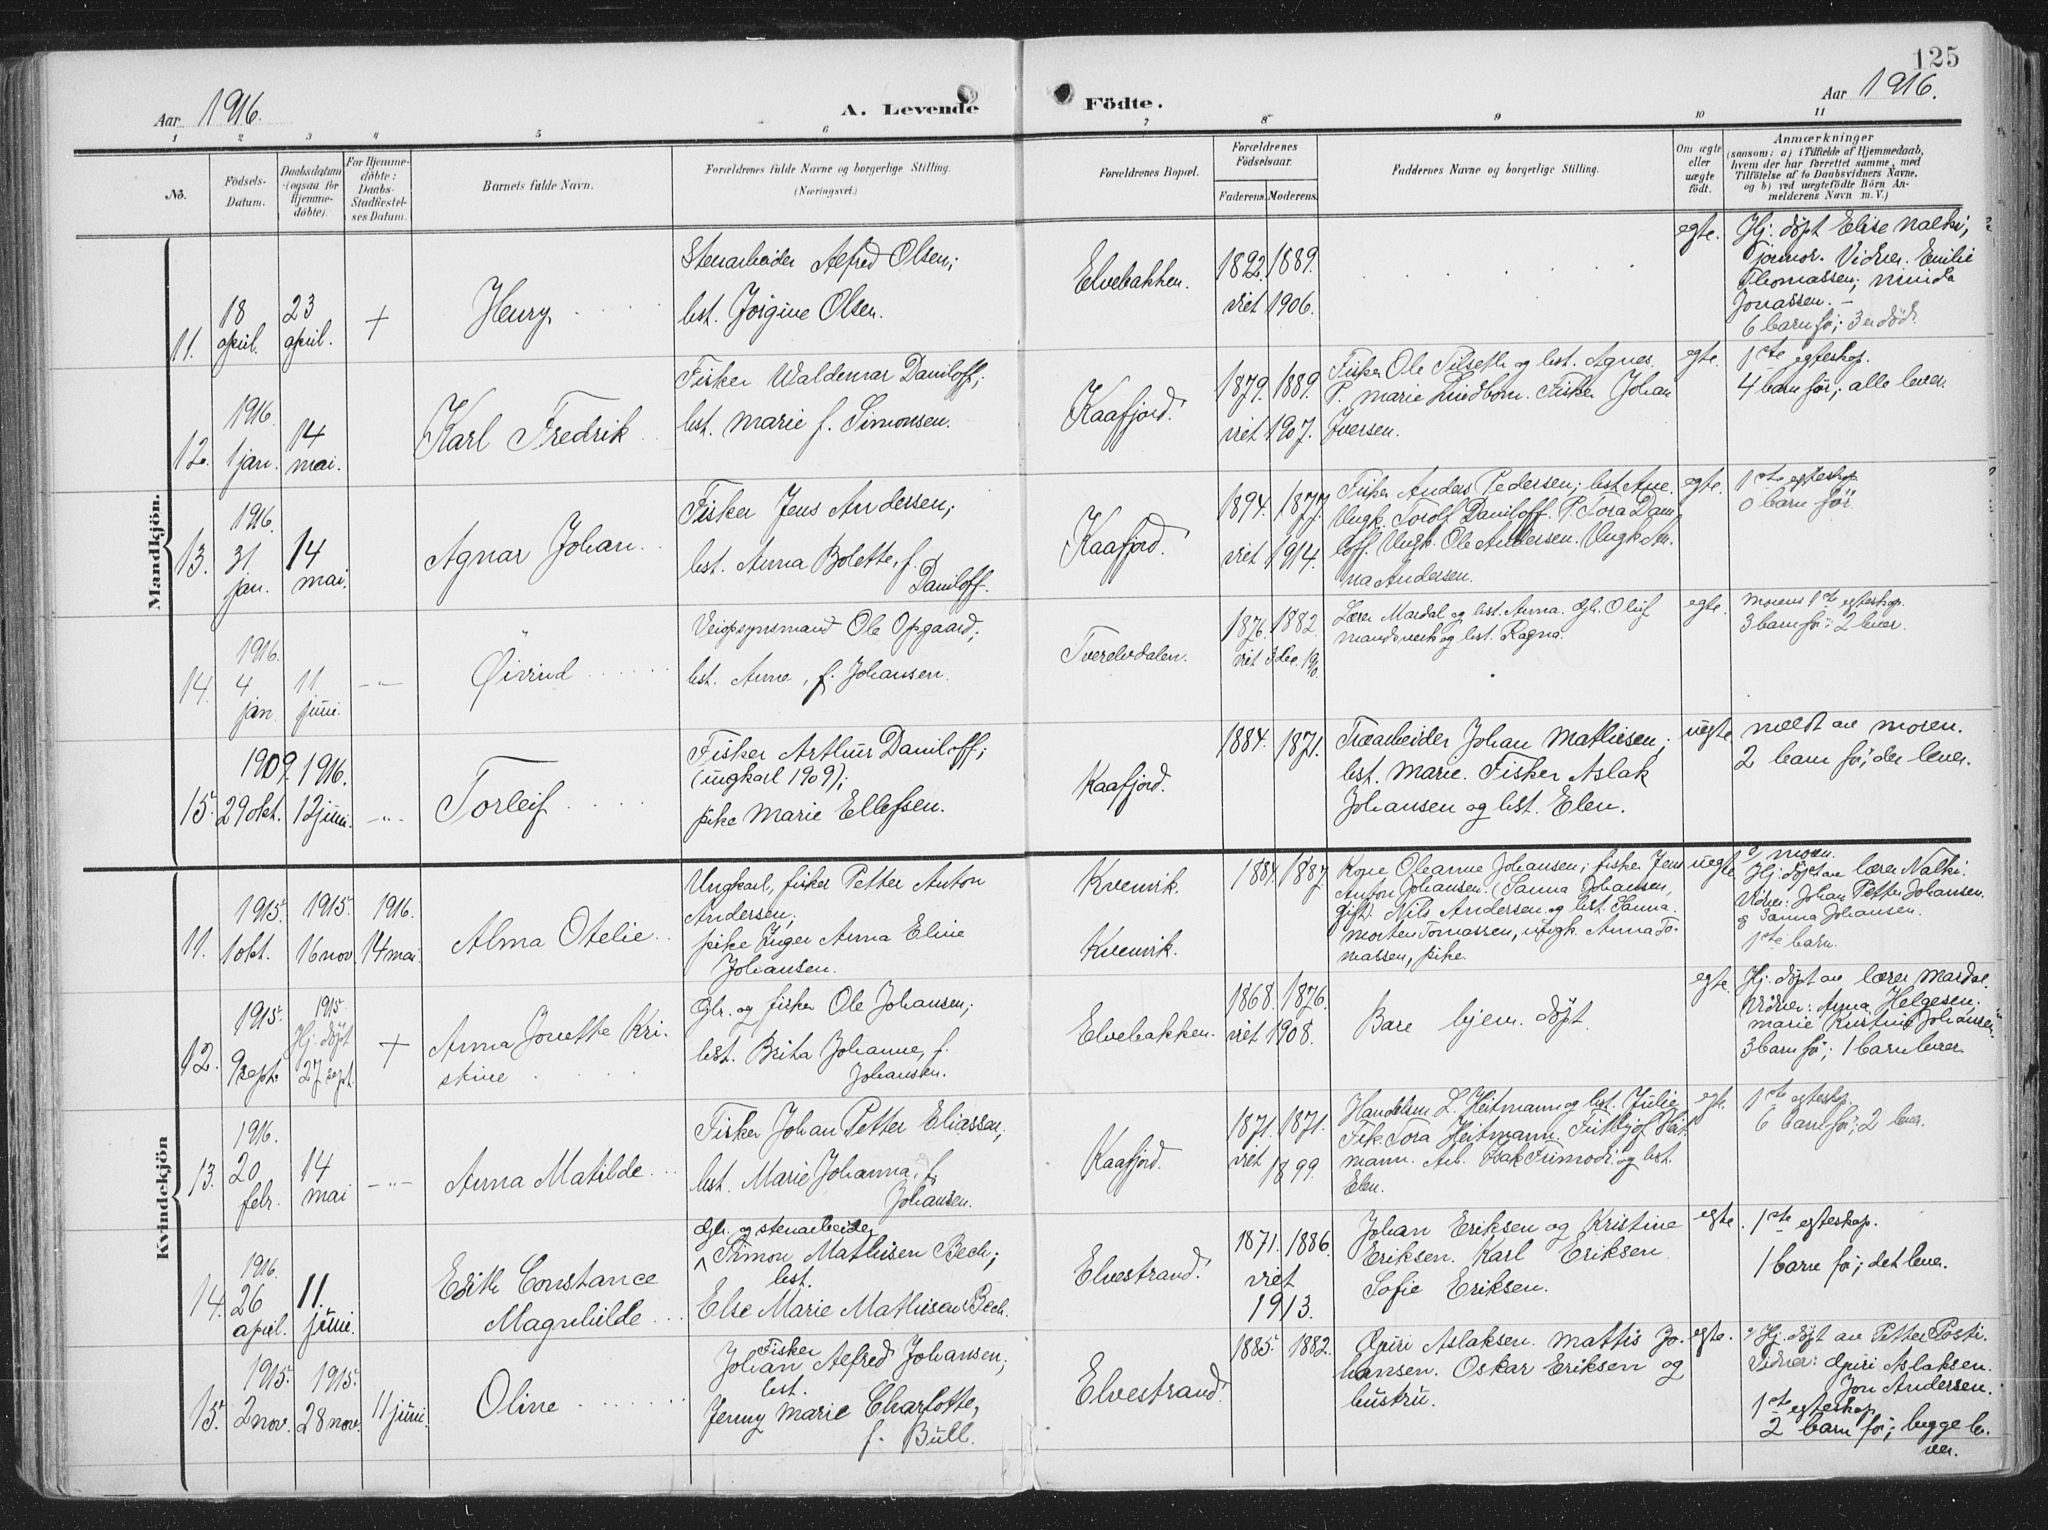 125
Aar 1916.
A. Levende Födte.
Aar 1916.
1 2 3 4 5 6 7 8 9 10 11
No.
Födsels-Datum.
Daabsdatum (ogsaa for Hjemme-döbte).
For Hjemme-döbte: Daabs-Stadfæstel-ses Datum.
Barnets fulde Navn.
Forældrenes fulde Navne og borgerlige Stilling.
(Næringsvei.)
Forældrenes Bopæl.
Forældrenes Födselsaar.
Faderens. Moderens.
Faddernes Navne og borgerlige Stilling.
Om ægte eller uægte födt.
Anmærkninger
(saasom: a) i Tilfælde af Hjemmedaab,
hvem der har forrettet samme, med
Tilföielse af to Daabsvidners Navne,
og b) ved uægtefödte Börn An-
melderens Navn m. V.)
Mandkjön.
11. 18 april. 23 april. + Henry
Stenarbeider Alfred Olsen;
bst. Jørgine Olsen.
Elvebakken.
1892. 1889.
viet 1906.
egte.
Hj. døpt Elise
Vidner. Emilie
Thomassen;
Jonassen. –
6 barn før; 3 er død.
12. 1916. 1 jan. 14 mai. Karl Fredrik
Fisker Waldemar Daniloff;
bst. Marie f. Simonsen.
Kaafjord.
1879. 1889.
viet 1907.
Fisker Ole Tilseth og bst. Agnes.
P. Marie Lindbom. Fisker Johan
Iversen.
egte.
1ste egteskap.
4 barn før; alle lever.
13. 1916. 31. jan. 14 mai. Agnar Johan
Fisker Jens Andersen;
bst. Anna Bolette, f.
Daniloff.
Kaafjord.
1894. 1877.
viet 1914.
Fisker Anders Pedersen; bst. Ane.
Ungk. Torolf Daniloff. P. Tora Dani-
loff. Ungk. Ole Andersen. Ungk. An-
na Andersen.
egte.
1ste egteskap
0 barn før.
14. 1916. 4 jan. 11 juni. -"- Øivind
Veiopsynsmand Ole Opgaard;
bst. Anna, f. Johansen.
Tverelvdalen.
1876. 1882.
viet 3 dec.
Lærer Mardal og bst. Anna. Gbr. Oluf
Mandsverk og bst. Ragna.
egte.
Morens 1ste egteskap.
3 barn før; 2 lever.
15. 1909. 29 okt. 1916. 12 juni. -"- Torleif
Fisker Arthur Daniloff;
(ungkarl 1909);
pike Marie Ellefsen.
Kaafjord.
1884. 1871.
Træarbeider Johan Mathisen;
bst. Marie. Fisker Aslak
Johansen og bst. Elen.
uegte
meldt av moren.
2 barn før; de lever.
Kvindekjön
11. 1915. 1 okt. 1915. 16 nov. 1916. 14 mai. Alma Otelie
Ungkarl, fisker Petter Anton
Andersen;
pike Inger Anna Eline
Johansen.
Kvenvik.
Kvenvik.
1884. 1887.
Kone Oleanne Johansen; fisker Jens
Anton Johansen. (Sanna Johansen,
gift). Nils Andersen og bst. Sanna.
Morten Tomassen, ungk. Anna To-
massen, pike.
uegte
moren.
Hj. døpt av lærer
Vidner: Johan Petter Johansen.
og Sanna Johansen.
1ste barn.
12. 1915. 9 sept. 1915. Hj. døpt 27 sept. + Anna Jonette Kri-
stine
Gbr. og fisker Ole Johansen;
bst. Brita Johanne, f.
Johansen.
Elvebakken.
1868. 1876.
viet 1908.
Bare hjem. døpt.
egte.
Hj. døpt av lærer Mardal.
Vidner: Anna Helgesen;
Marie Kristine Johansen
3 barn før; 1 barn lever.
13. 1916. 20 febr. 14 mai -"- Anna Matilde
Fisker Johan Petter Eliassen;
bst. Marie Johanna, f.
Johansen.
Kaafjord.
1871. 1871.
viet 1899.
Handelsm. L. Heitmann og bst. Julie
Frk. Tora Heitmann. Fridtjof Heit-
mann. Arb. Isak og bst.
Elen.
egte.
1ste egteskap.
6 barn før; 2 lever.
14. 1916. 26 april. 11. juni. Edith Constance
Magnhilde
Gbr. og stenarbeider
Simon Mathisen Bech;
bst.
Else Marie Mathisen Bech.
Elvestrand.
1871. 1886.
viet
1913.
Johan Eriksen og Kristine
Eriksen. Karl Eriksen
Sofie Eriksen.
egte.
1ste egteskap.
1 barn før; det lever.
15. 1915. 2 nov. 1915. 28 nov. 11 juni. Oline
Fisker
Johan Alfred Johansen;
bst.
Jenny Marie Charlotte,
f. Bull.
Elvestrand.
1885. 1882.
Guri Aslaksen. Mattis Jo-
hansen. Oskar Eriksen og
hustru.
egte.
Hj. døpt av Petter Posti.
Vidner: Guri Aslaksen.
Jon Andersen.
1ste egteskap
2 barn før; begge le-
ver.